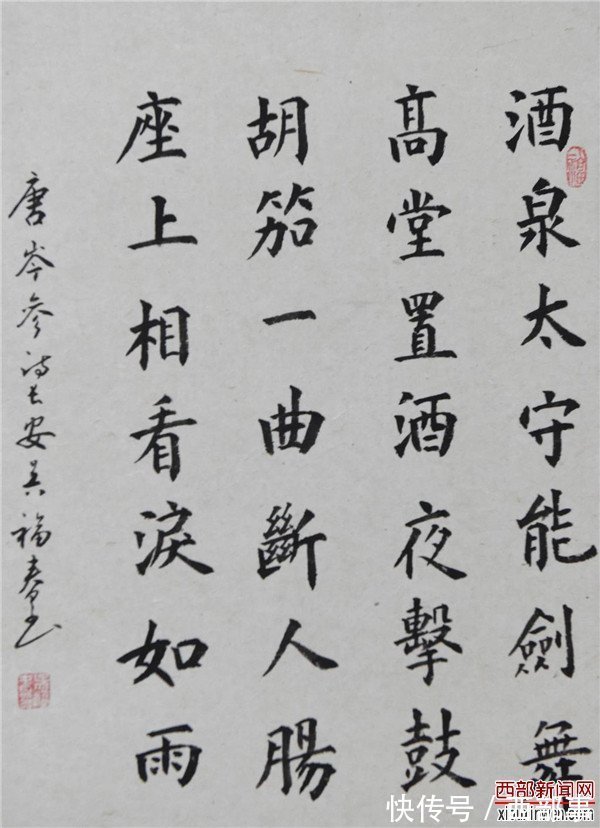 酒泉太守能劍舞
高堂置酒夜擊鼓
胡笳一曲斷人腸
座上相看淚如雨
唐岑參诗长安吴福春书
西部新闻网
快传号/西部